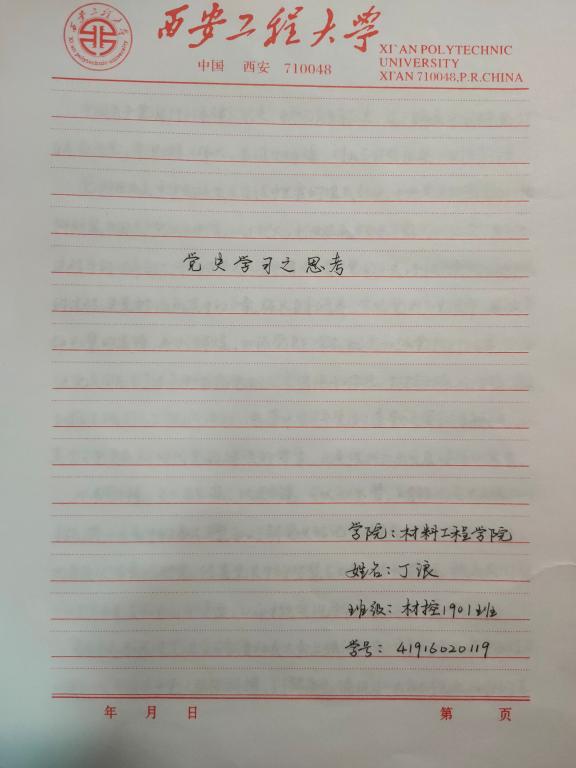 西安工程大学
xi'an polytechnic university
西安工程大学
中国 西安 710048
XI'AN POLYTECHNIC
UNIVERSITY
XI'AN 710048,P.R.CHINA
党史学习之思考
学院：材料工程学院
姓名：丁浪
班级：材控1901班
学号：41916020119
年 月 日 第 页